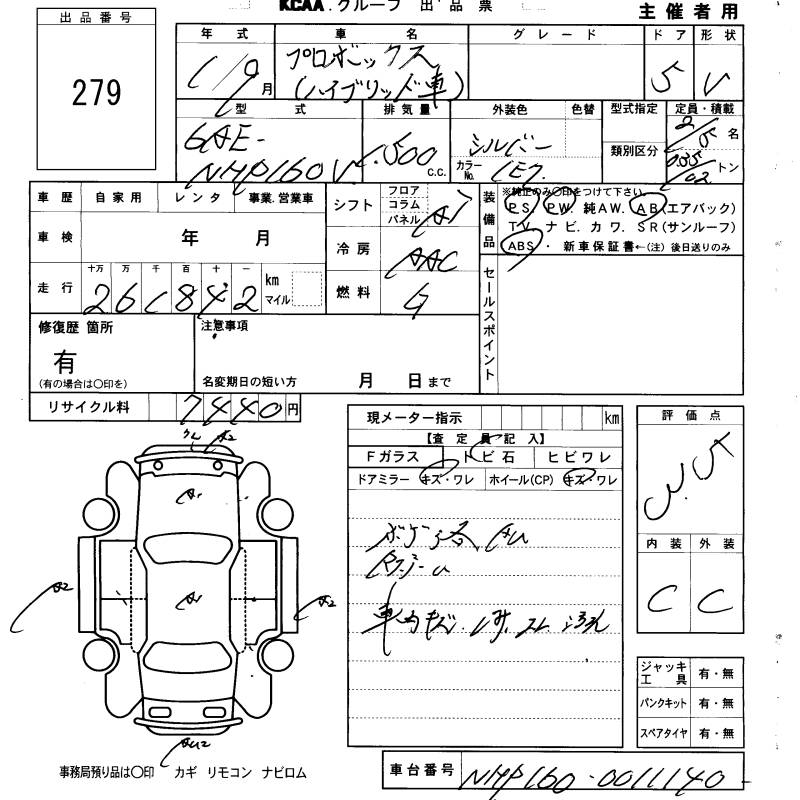 KCAA.グループ 出品票
主催者用
出品番号
279
年式 車名 グレード ドア 形状
1/9月 プロボックス 5 V
(ハイブリッド車)
型式 排気量 外装色 色替 型式指定 定員・積載
6AE- シルバー 2/5名
NHP160V 1.500 c.c. カラーNo. 1E7 類別区分 トン
車歴 自家用 レンタ 事業.営業車
シフト フロア コラム パネル AT
装備品 ※純正のみ〇印をつけて下さい。
PS. PW. 純AW. AB(エアバック)
TV. ナビ. カワ. SR(サンルーフ)
ABS ・ 新車保証書←(注)後日送りのみ
車検 年 月
冷房 AAC
走行 十万 万 千 百 十 一
261842 km マイル
燃料 G
セールスポイント
修復歴 箇所 注意事項
有
(有の場合は〇印を) 名変期日の短い方 月 日まで
リサイクル料 7440円
現メーター指示 km
【査定員記入】
Fガラス トビ石 ヒビワレ
ドアミラー キズ・ワレ ホイール(CP) キズ・ワレ
評価点
3.5
内装 外装
C C
A2
A1
A2 A1 A2
AU2
ジャッキ工具 有・無
パンクキット 有・無
スペアタイヤ 有・無
事務局預り品は〇印 カギ リモコン ナビロム
車台番号 NHP160-0011140